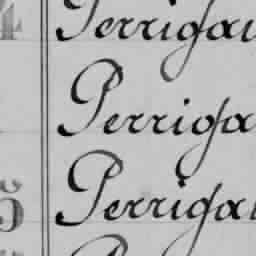 4 Perrigau
Perriga
5 Perrigau